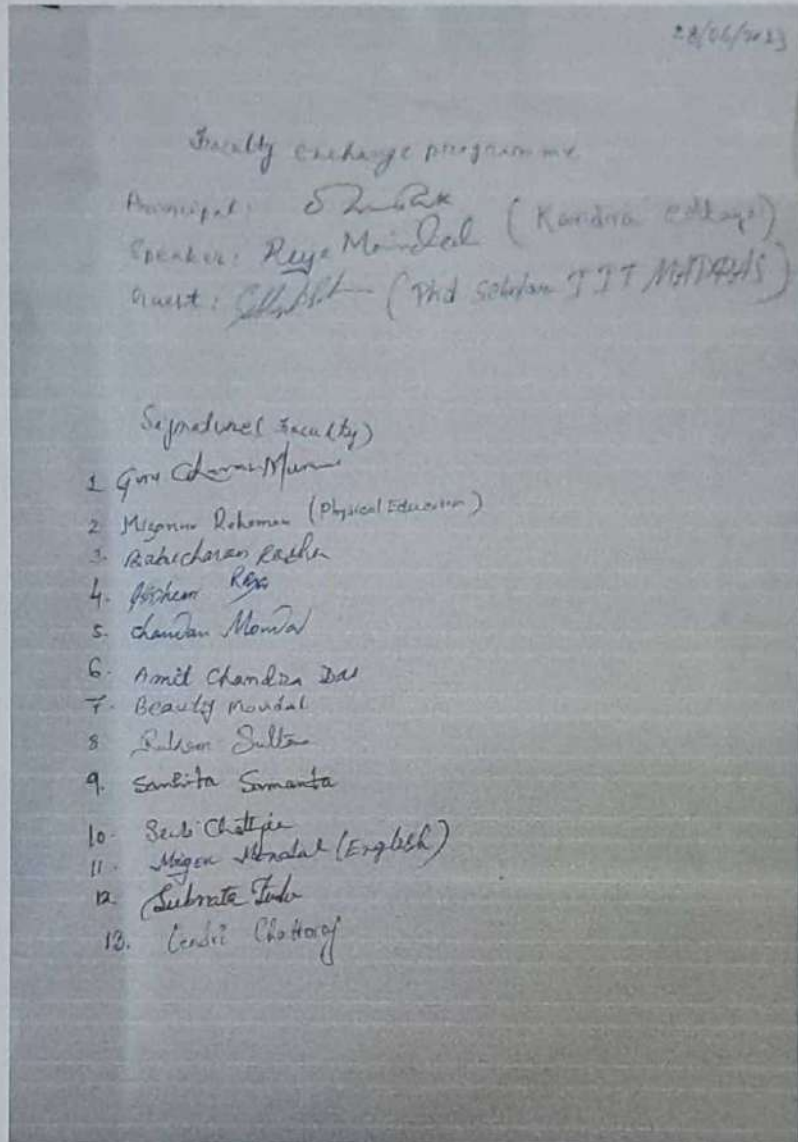 28/06/2023
Faculty exchange programme
Principal:
Speaker: Reya Mondal (Kandra College)
Guest: (Phd Scholar IIT MADRAS)
Signature (Faculty)
1 Guru Charan Murmu
2 Mizanur Rahaman (Physical Education)
3. Babucharan
4.
5. Chandan Mondal
6. Amit Chandra Das
7. Beauty Mondal
8 Sultan
9. Sanhita Samanta
10. Chatterjee
11. Mondal (English)
12 Subrata Tudu
13. Chattoraj